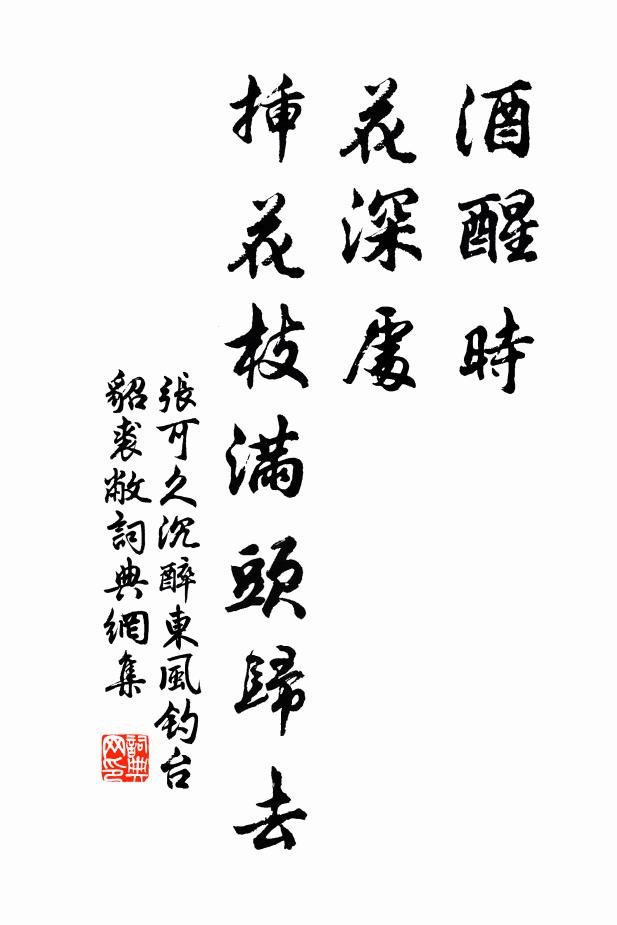 酒醒時
花深處
插花枝滿頭歸去
張可久沉醉東風釣台
貂裘敝詞典網集
詞典网印